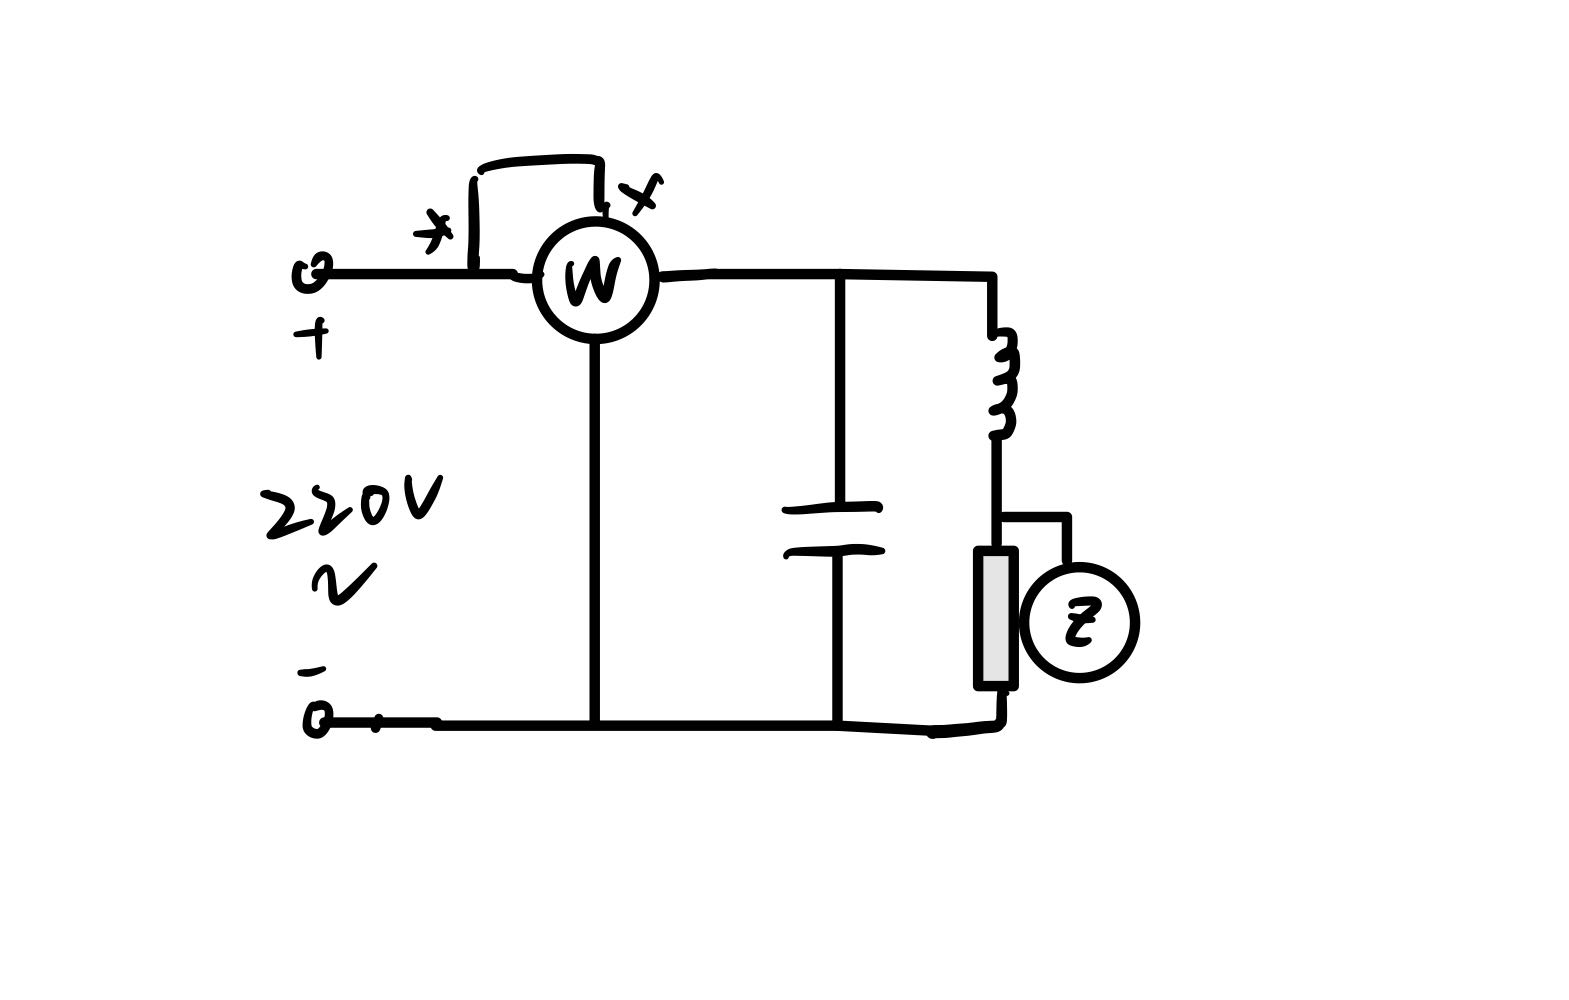 *
*
W
+
220V
~
Z
-